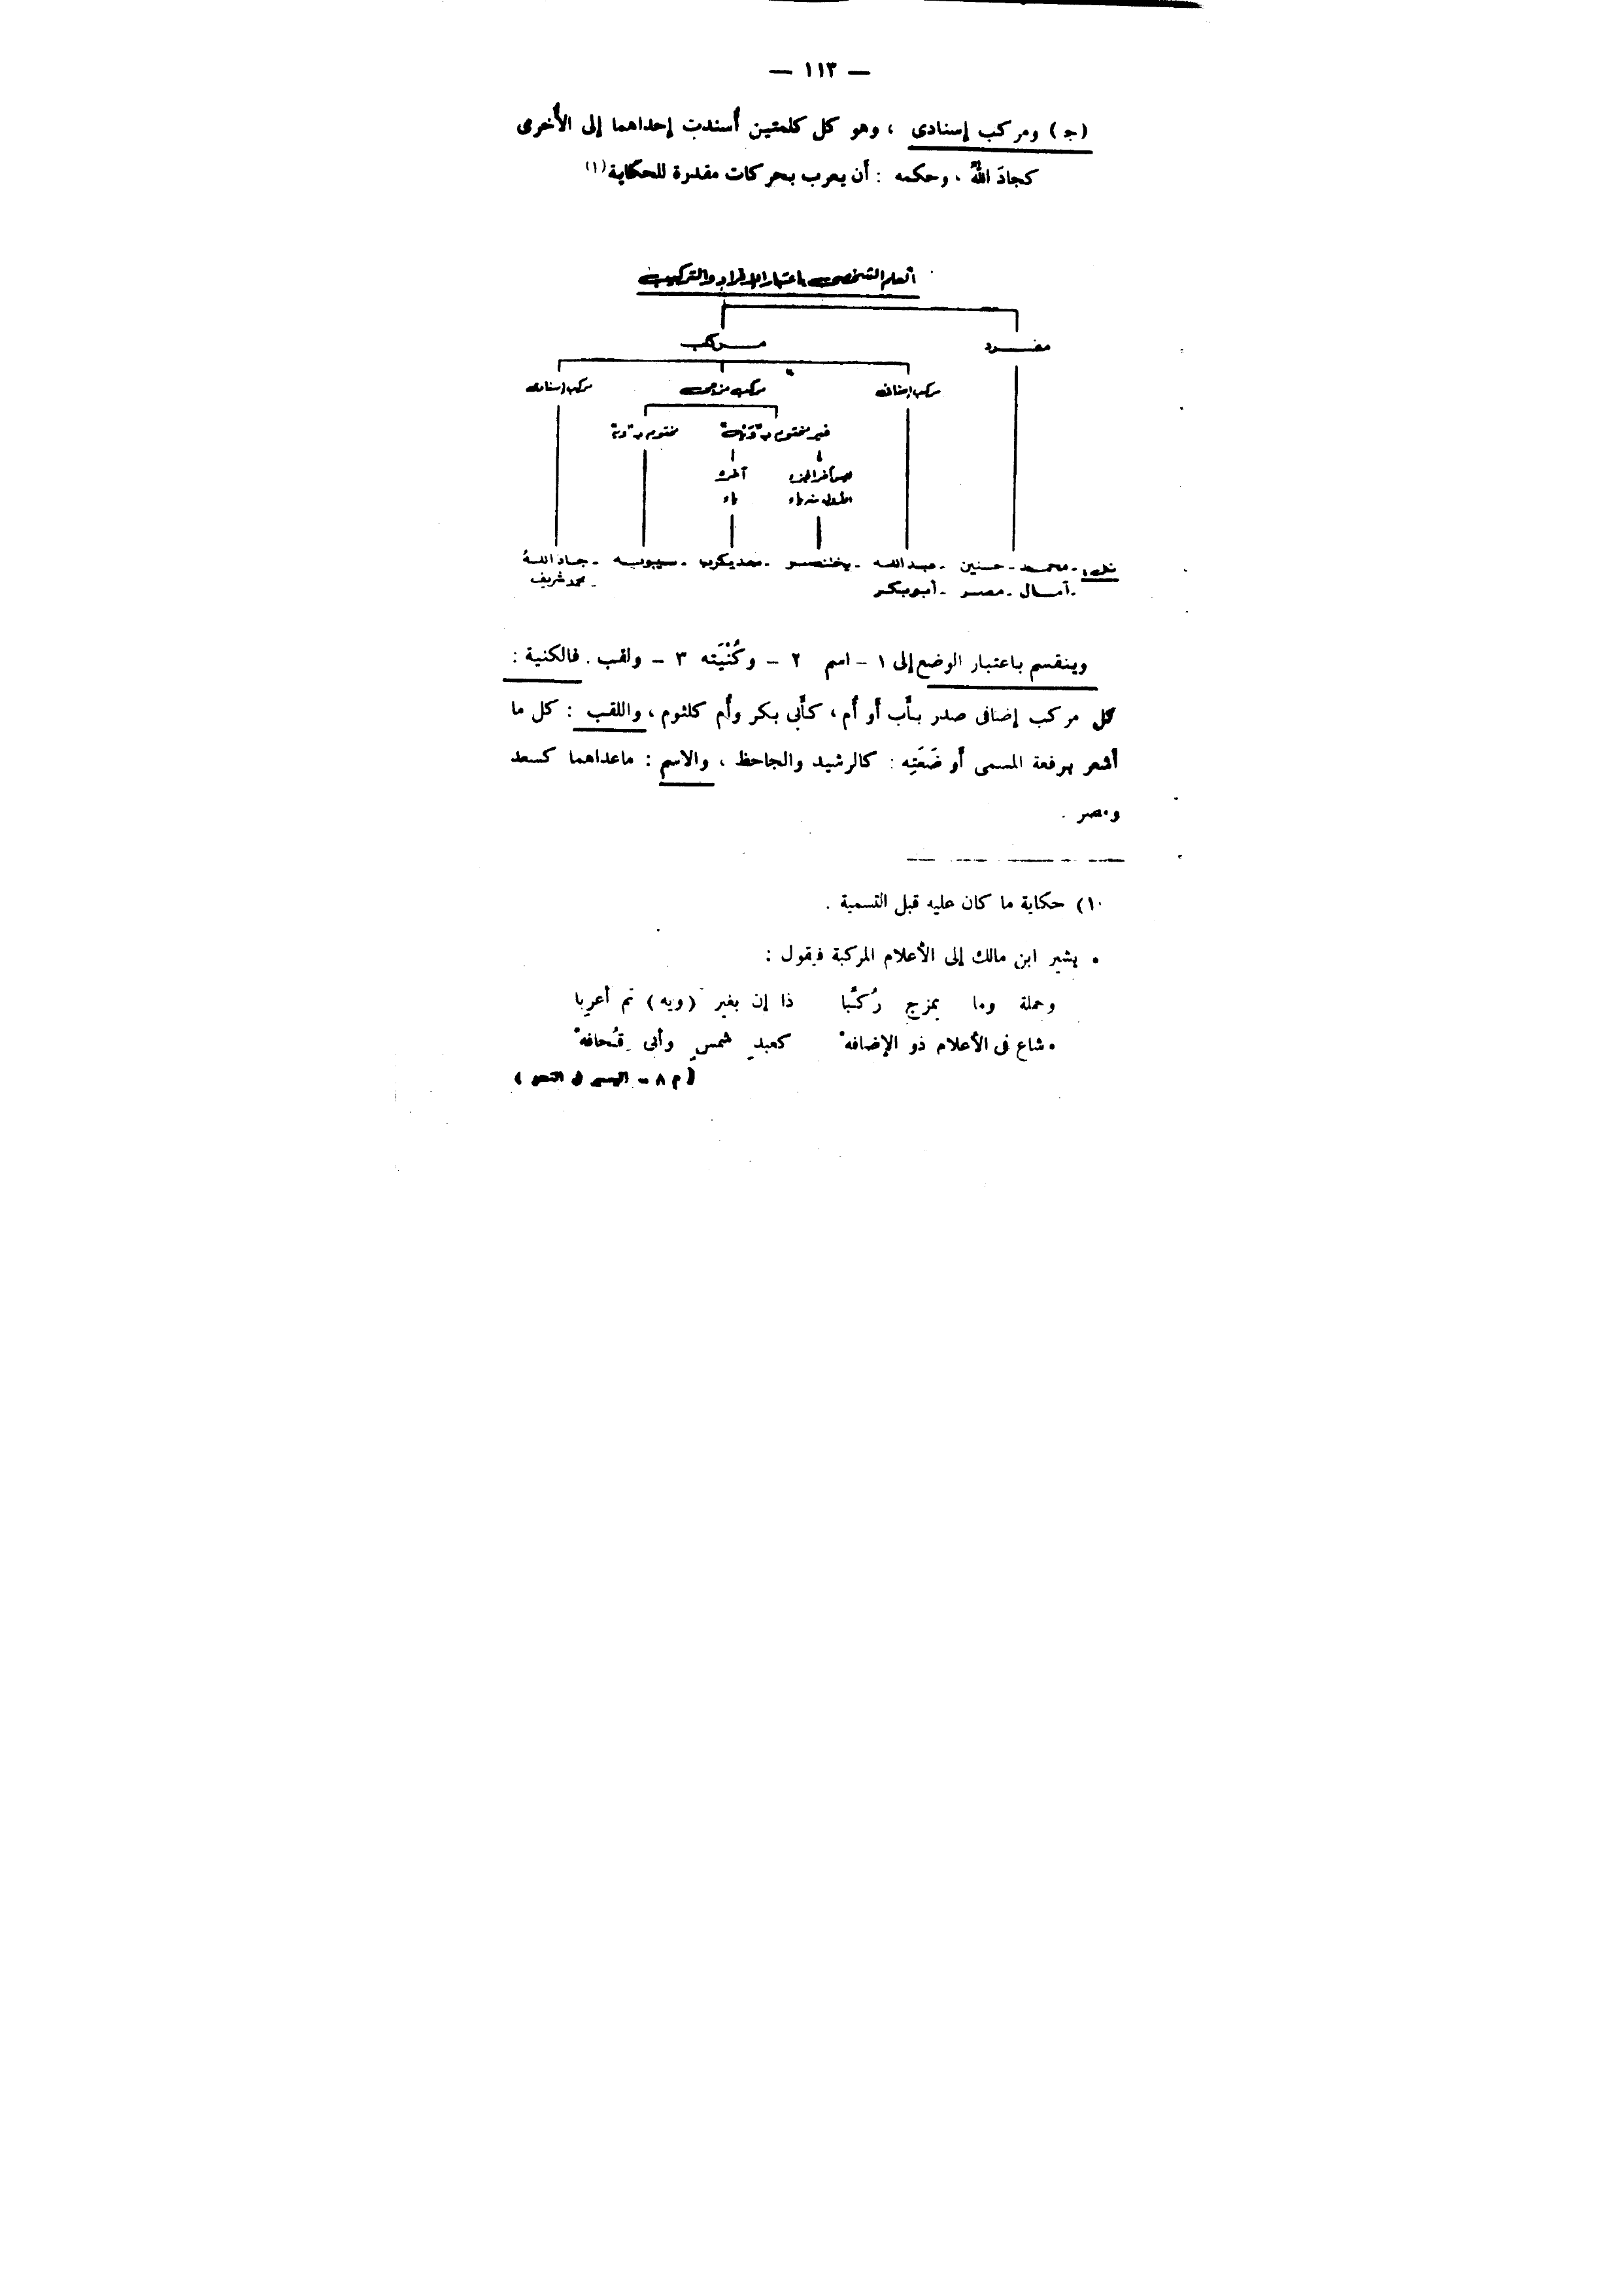 — ١١٣ —
(ج) ومركب إسنادى ، وهو كل كلمتين أسندت إحداهما إلى الأخرى
كجادَ اللهُ ، وحكمه : أن يعرب بحركات مقدرة للحكاية(١)
العلم الشخصى باعتبار الإفراد والتركيب
مفرد مركب
مركب إضافى مركب مزجى مركب إسنادى
غير مختوم بـ "ويه" مختوم بـ "ويه"
ليس آخر الجزء آخره
الأول منه ياء ياء
مثل: - محمد - حسنين - عبد الله - بختنصر - معديكرب - سيبويه - جاد اللهُ
- آمال - مصر - أبو بكر - محمد شريف
وينقسم باعتبار الوضع إلى ١ – اسم ٢ – وكُنْيَته ٣ – ولقب . فالكنية :
كل مركب إضافى صدر بأب أو أم ، كأبى بكر وأم كلثوم ، واللقب : كل ما
أشعر برفعة المسمى أو ضَعَتِه : كالرشيد والجاحظ ، والاسم : ماعداهما كسعد
ومصر .
(١) حكاية ما كان عليه قبل التسمية .
• يشير ابن مالك إلى الأعلام المركبة فيقول :
وجملة وما بمزج رُكِّبا ذا إن بغير (ويه) تم أعربا
• شاع فى الأعلام ذو الإضافهْ كعبدِ شمسٍ وأبى قُحافهْ
(م ٨ – اليسير فى النحو)